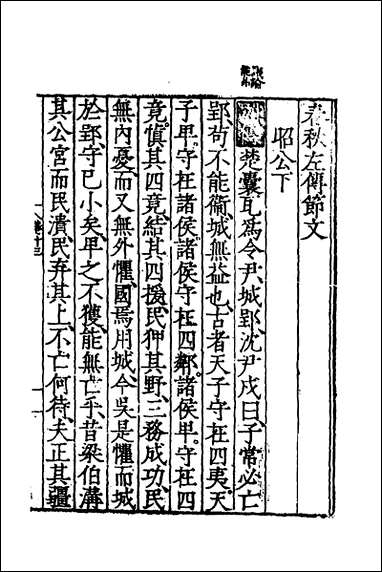 春秋左傳節文
昭公下
楚囊瓦爲令尹城郢沈尹戌曰子常必亡
郢苟不能衞城無益也古者天子守在四夷天
子卑守在諸侯諸侯守在四鄰諸侯卑守在四
竟慎其四竟結其四援民狎其野三務成功民
無內憂而又無外懼國焉用城今吳是懼而城
於郢守已小矣卑之不獲能無亡乎昔梁伯溝
其公宮而民潰民弃其上不亡何待夫正其疆